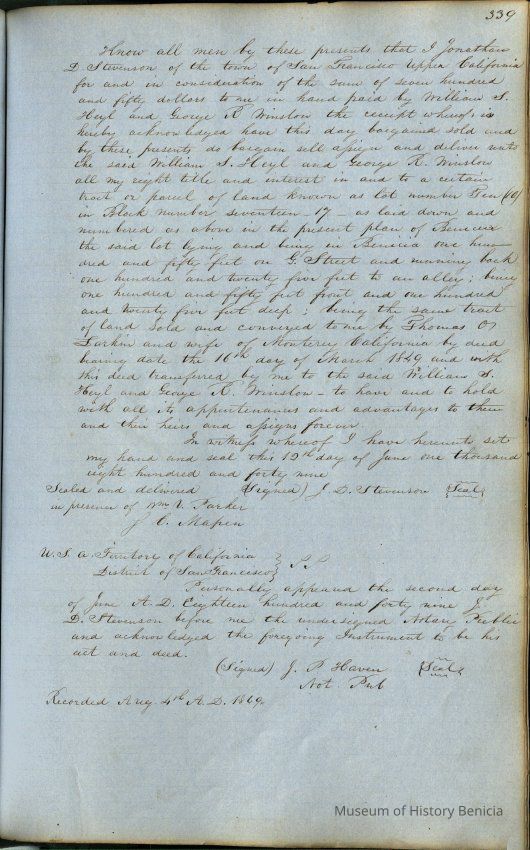 339
Know all men by these presents that I Jonathan
D Stevenson of the town of San Francisco Upper California
for and in consideration of the sum of seven hundred
and fifty dollars to me in hand paid by William S.
Heyl and George R Winslow the receipt whereof is
hereby acknowledged have this day bargained sold and
by these presents do bargain sell assign and deliver unto
the said William S. Heyl and George R. Winslow
all my right title and interest in and to a certain
tract or parcel of land known as lot number Ten (10)
in Block number seventeen - 17 - as laid down and
numbered as above in the present plan of Benicia
the said lot lying and being in Benicia one hun
dred and fifty feet on G. Street and running back
one hundred and twenty five feet to an alley; being
one hundred and fifty feet front and one hundred
and twenty five feet deep; being the same tract
of land sold and conveyed to me by Thomas O.
Larkin and wife of Monterey California by deed
bearing date the 16th day of March 1849 and with
this deed transferred by me to the said William S.
Heyl and George R. Winslow - to have and to hold
with all its appurtenances and advantages to them
and their heirs and assigns forever.
In witness whereof I have hereunto set
my hand and seal this 12th day of June one thousand
eight hundred and forty nine
Sealed and delivered (Signed) J. D. Stevenson Seal
in presence of Wm V. Parker
J. C.
U. S. A. Territory of California
District of San Francisco } S S
Personally appeared the second day
of June A. D. Eighteen hundred and forty nine J.
D. Stevenson before me the undersigned Notary Public
and acknowledged the foregoing Instrument to be his
act and deed.
(Signed) J. P. Haven Seal
Not. Pub
Recorded Aug. 4th A. D. 1849.
Museum of History Benicia